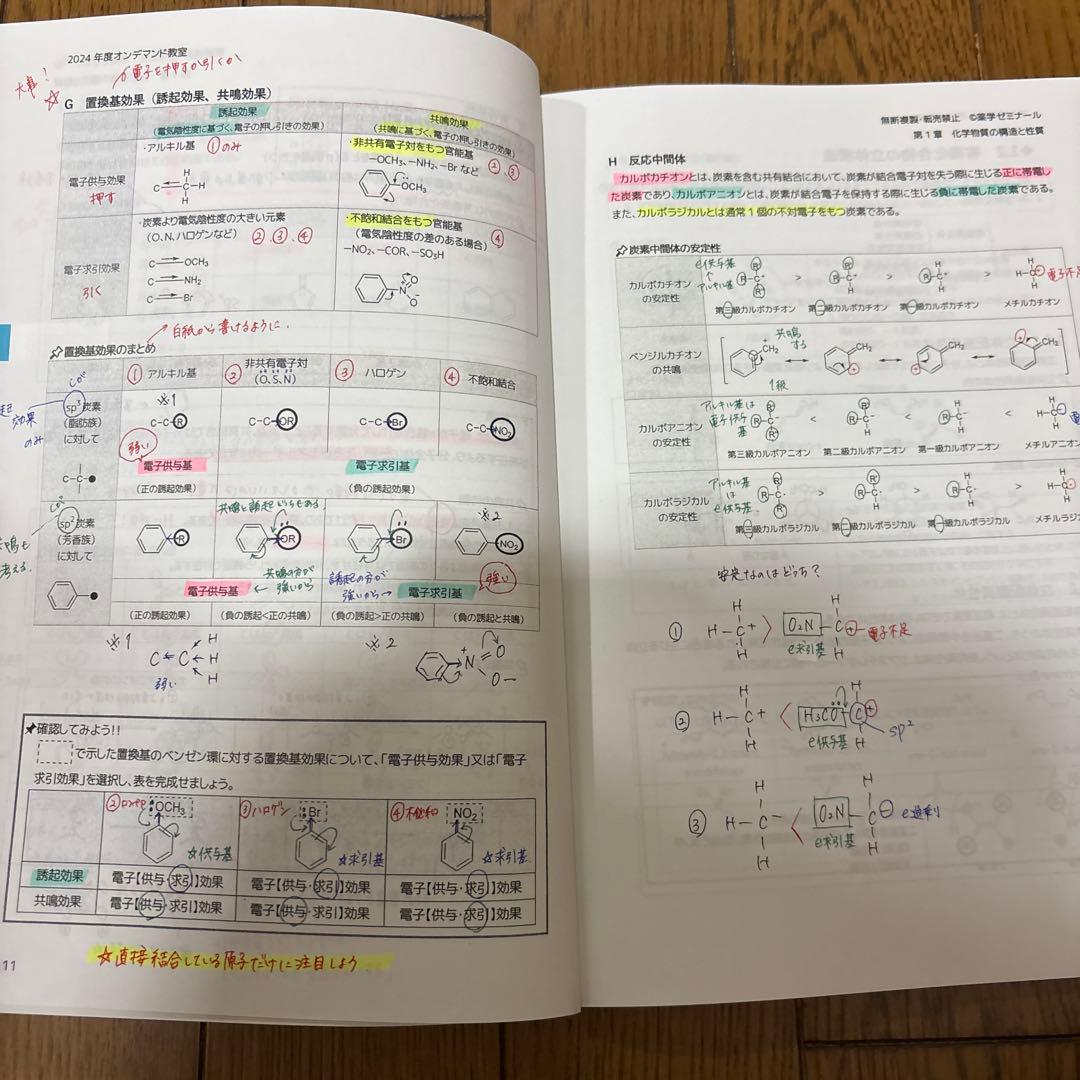 2024 年度オンデマンド教室
大事!
電子を押すか引くか
G 置換基効果（誘起効果、共鳴効果）
誘起効果
（電気陰性度に基づく、電子の押し引きの効果）
共鳴効果
（共鳴に基づく、電子の押し引きの効果）
電子供与効果
押す
・アルキル基 ①のみ
H
C C—H
H
・非共有電子対をもつ官能基
−OCH₃、−NH₂、−Br など ②、③
OCH₃
電子求引効果
引く
・炭素より電気陰性度の大きい元素
（O、N、ハロゲンなど） ②、③、④
C OCH₃
C NH₂
C Br
・不飽和結合をもつ官能基
（電気陰性度の差のある場合） ④
−NO₂、−COR、−SO₃H
N O
O⁻
白紙から書けるように.
置換基効果のまとめ
① アルキル基
② 非共有電子対
（O、S、N）
③ ハロゲン
④ 不飽和結合
効果
のみ
sp³炭素
（脂肪族）
に対して
C–C–●
※1
C–C–R
C–C–OR
C–C–Br
C–C–NO₂
弱い
電子供与基
（正の誘起効果）
電子求引基
（負の誘起効果）
考える.
sp²炭素
（芳香族）
に対して
共鳴と誘起どちらもある
※2
R
OR
Br
NO₂
電子供与基
← 共鳴の方が
強いから
誘起の方が
強いから→
電子求引基
強い
（正の誘起効果）
（負の誘起<正の共鳴）
（負の誘起>正の共鳴）
（負の誘起と共鳴）
※1
C C H
H
H
弱い
※2
N⁺ O
O−
確認してみよう!!
で示した置換基のベンゼン環に対する置換基効果について、「電子供与効果」又は「電子
求引効果」を選択し、表を完成せましょう。
② OCH₃
☆供与基
③ハロゲン Br
☆求引基
④不飽和 NO₂
☆求引基
誘起効果
電子【供与・求引】効果
電子【供与・求引】効果
電子【供与・求引】効果
共鳴効果
電子【供与・求引】効果
電子【供与・求引】効果
電子【供与・求引】効果
☆直接結合している原子だけに注目しよう
11
無断複製・転売禁止 ©薬学ゼミナール
第1章 化学物質の構造と性質
H 反応中間体
カルボカチオンとは、炭素を含む共有結合において、炭素が結合電子対を失う際に生じる正に帯電し
た炭素であり、カルボアニオンとは、炭素が結合電子を保持する際に生じる負に帯電した炭素である。
また、カルボラジカルとは通常1個の不対電子をもつ炭素である。
炭素中間体の安定性
カルボカチオン
の安定性
e供与基
↑
アルキル基
電子不足
第三級カルボカチオン
第二級カルボカチオン
第一級カルボカチオン
メチルカチオン
ベンジルカチオン
の共鳴
共鳴
する
CH₂
CH₂
CH₂
CH₂
1級
カルボアニオン
の安定性
アルキル基は
電子供与
基
第三級カルボアニオン
第二級カルボアニオン
第一級カルボアニオン
メチルアニオン
カルボラジカル
の安定性
アルキル基
は
e供与基
第三級カルボラジカル
第二級カルボラジカル
第一級カルボラジカル
メチルラジカ
安定なのはどっち?
H H
① H–C⁺ > O₂N–C⊕ 電子不足
H e求引基 H
H H
② H–C⁺ < H₃CO–C⊕
H e供与基 H
sp²
H H
③ H–C⁻ < O₂N–C⊖ e過剰
H e求引基 H